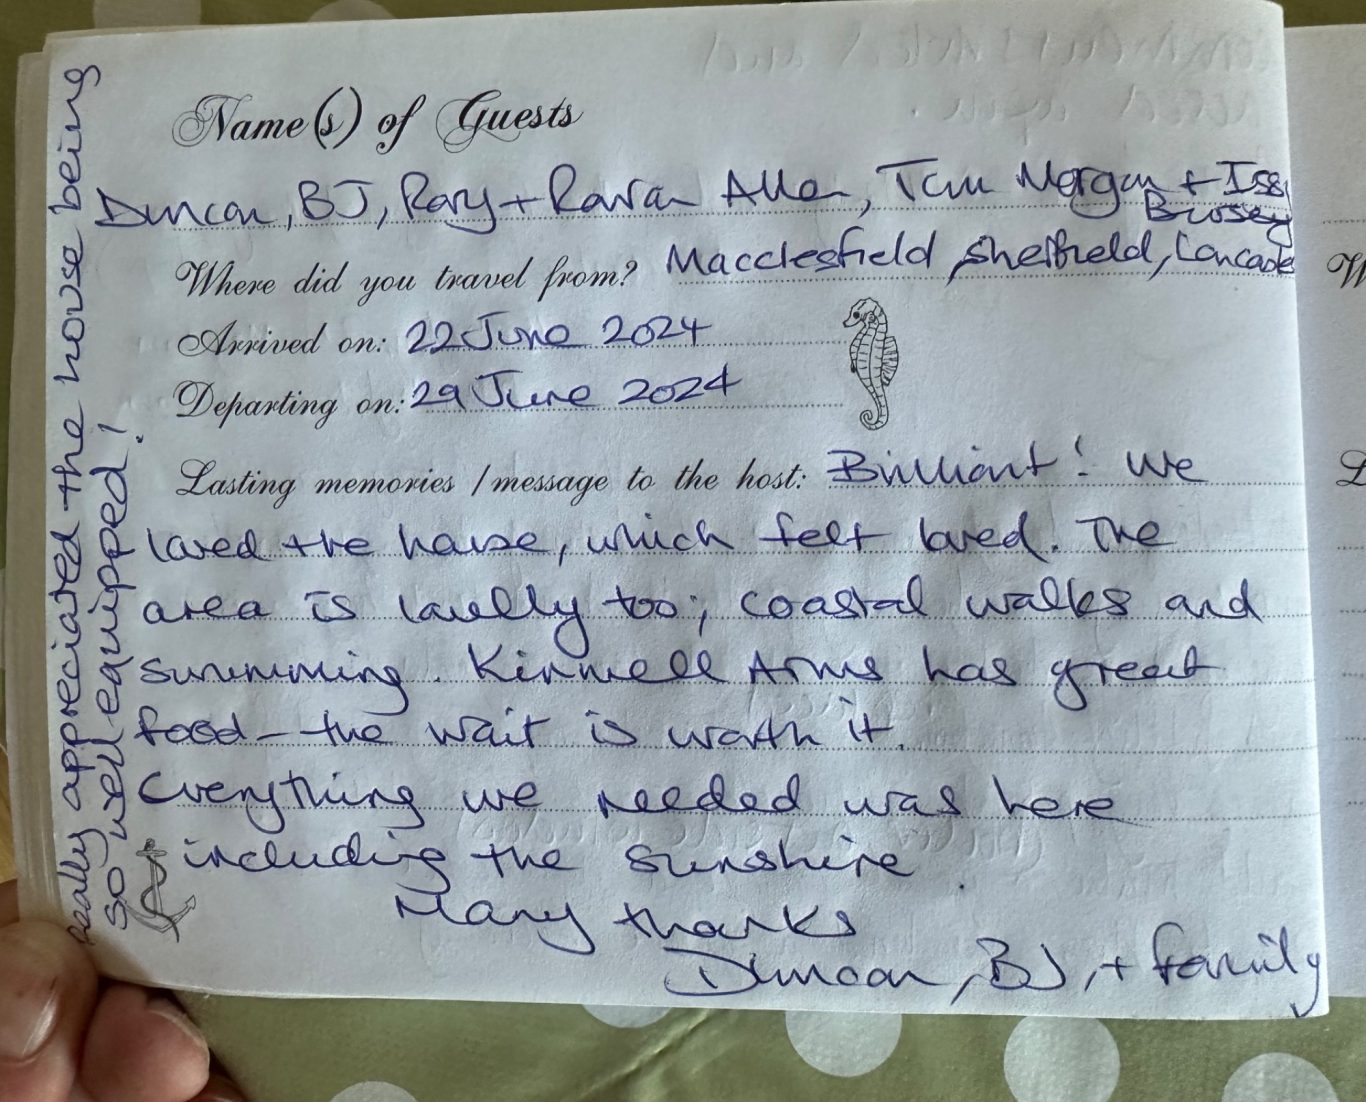 Name(s) of Guests
Duncan, BJ, Rory + Rowan Allen, Tom Morgan + Issi
Brosey
Where did you travel from? Macclesfield, Sheffield, Lancaster
Arrived on: 22 June 2024
Departing on: 29 June 2024
Lasting memories / message to the host: Brilliant! We
loved the house, which felt loved. The
area is lovely too; coastal walks and
swimming. Kinmell Arms has great
food - the wait is worth it.
Everything we needed was here
including the sunshine.
Many thanks
Duncan, BJ, + family
really appreciated the house being
so well equipped!